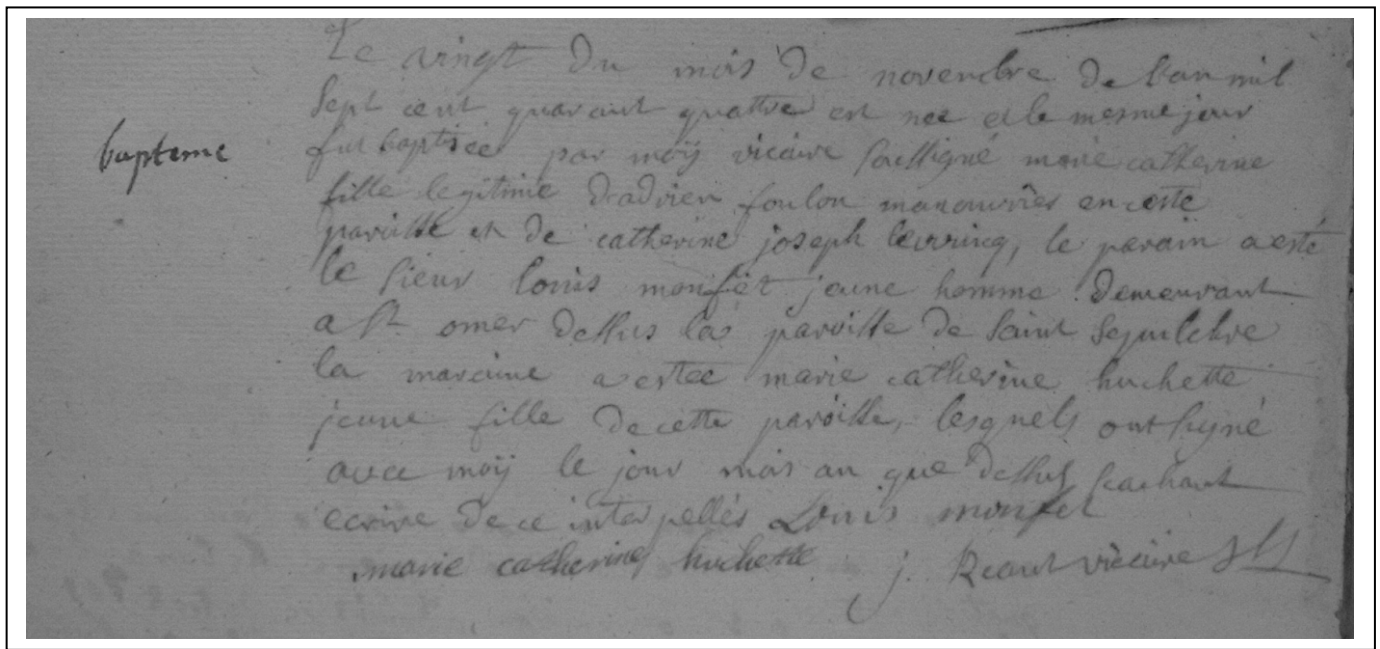 Le vingt du mois de novembre de l'an mil
bapteme
sept cent quarant quattre est nee et le mesme jour
fut baptisée par moÿ vicaire soussigné marie catherine
fille legitime d'adrien foulon manouvries en ceste
paroisse et de catherine joseph le parain a esté
le sieur louis monfet jeune homme demeurant
a St omer dessus la paroisse de saint sepulchre
la maraine a estee marie catherine huchette
jeune fille de cette paroisse, lesquels ont signé
avec moÿ le jour mois an que dessus scachant
ecrire de ce interpellés Louis monfet
marie catherine huchette j. vicaire